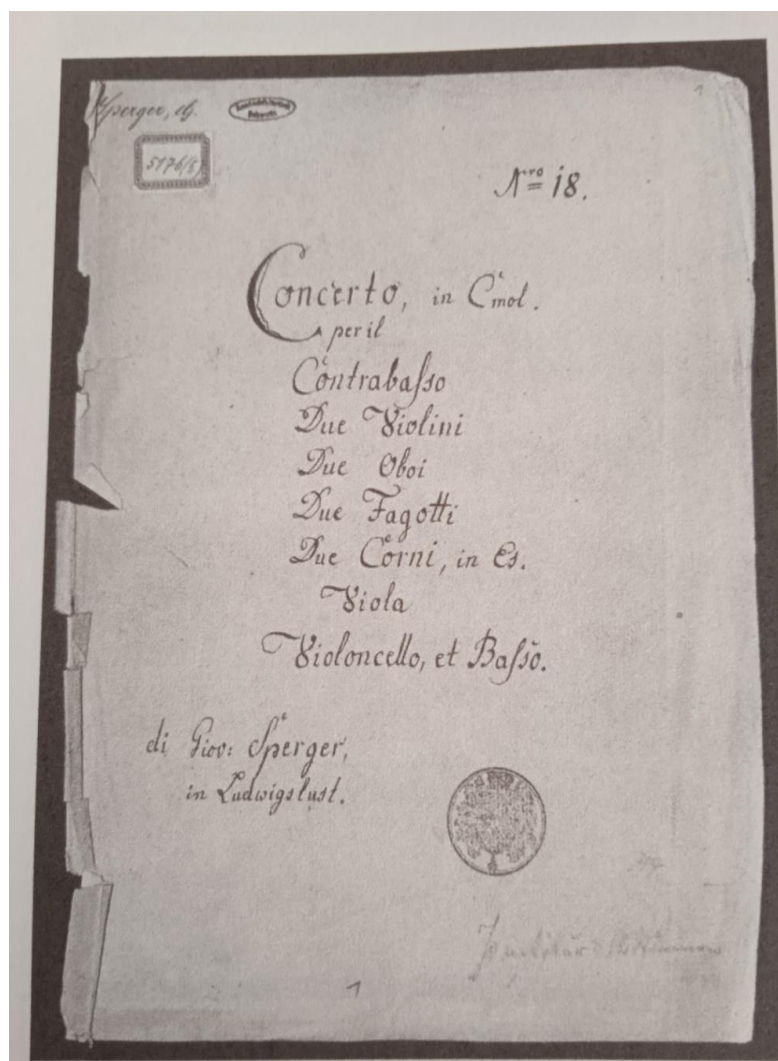 Sperger,
5176/8
1
Nro 18.
Concerto, in C mol.
per il
Contrabaſso
Due Violini
Due Oboi
Due Fagotti
Due Corni, in Es.
Viola
Violoncello, et Baſso.
di Giov: Sperger,
in Ludwigslust.
1